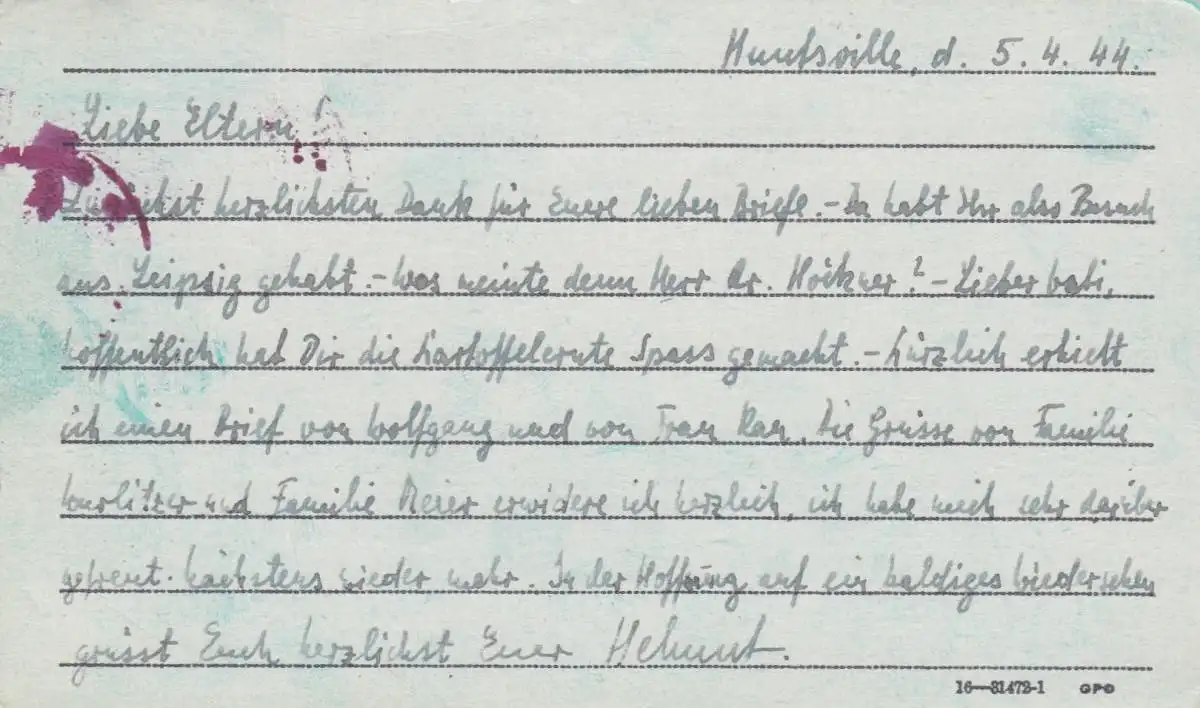 Huntsville, d. 5. 4. 44.
Liebe Eltern!
Zunächst herzlichsten Dank für Euere lieben Briefe. - Da habt Ihr also Besuch
aus Leipzig gehabt. - Was meinte denn Herr Dr. Höckner? - Lieber Vati,
hoffentlich hat Dir die Kartoffelernte Spass gemacht. - Kürzlich erhielt
ich einen Brief von Wolfgang und von Frau Rau. Die Grüsse von Familie
Wurlitzer und Familie Meier erwidere ich herzlich, ich habe mich sehr darüber
gefreut. Nächstens wieder mehr. In der Hoffnung auf ein baldiges Wiedersehen
grüsst Euch herzlichst Euer Helmut.
16—31472-1 GPO